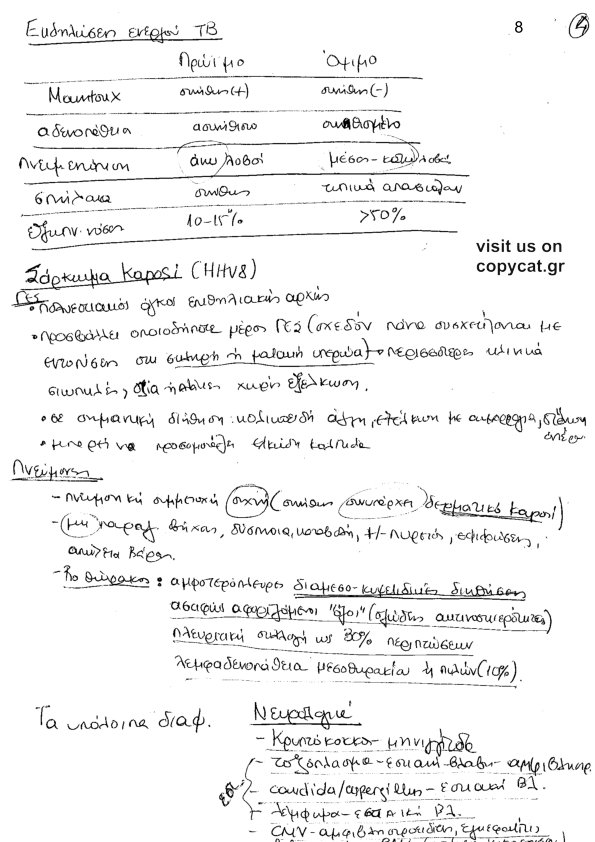 Εκδηλώσεις ενεργού TB
8
4
Πρώιμο Όψιμο
Mantoux συνήθως (+) συνήθως (-)
αδενοπάθεια ασυνήθιστο συνηθισμένο
πνευμ εντόπιση άνω λοβοί μέσοι - κάτω λοβοί
σπήλαια συνήθως τυπικά απουσιάζουν
εξωπν. νόσος 10-15% >50%
visit us on
copycat.gr
Σάρκωμα Kaposi (HHV8)
ΓΕΣ
• πολυεστιακός όγκος ενδοθηλιακής αρχής
• προσβάλλει οποιοδήποτε μέρος ΓΕΣ (σχεδόν πάντα συσχετίζονται με
εντοπίσεις στη σκληρή ή μαλακή υπερώα) • περισσότερες κλινικά
σιωπηλές, χωρίς εξέλκωση.
• σε σημαντική διήθηση: κωλικοειδή άλγη, εξέλκωση με αιμορραγία,
• μπορεί να προσομοιάζει ελκώδη κολίτιδα
Πνεύμονες
- πνευμονική συμμετοχή συχνή (συνήθως συνυπάρχει δερματικό Kaposi)
- (μη) παραγ βήχας, δύσπνοια, +/- πυρετός, εφιδρώσεις,
απώλεια βάρους.
- Rο θώρακος: αμφοτερόπλευρες διαμεσο-κυψελιδικές διηθήσεις
ασαφώς αφοριζόμενοι "όζοι" (οζώδεις ακτινοσκιερότητες)
πλευριτική συλλογή ως 30% περιπτώσεων
λεμφαδενοπάθεια μεσοθωρακίου ή πυλών (10%).
Τα υπόλοιπα διαφ.
Νευρολογικά
- Κρυπτόκοκκο - μηνιγγίτιδα
- τοξόπλασμα - εστιακή βλάβη -
- candida/aspergillus - εστιακή βλ.
- λέμφωμα - εστιακή βλ.
- CMV - αμφιβληστροειδίτιδα, εγκεφαλίτις